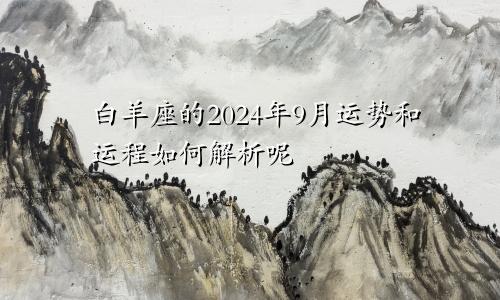 白羊座的2024年9月运势和
运程如何解析呢